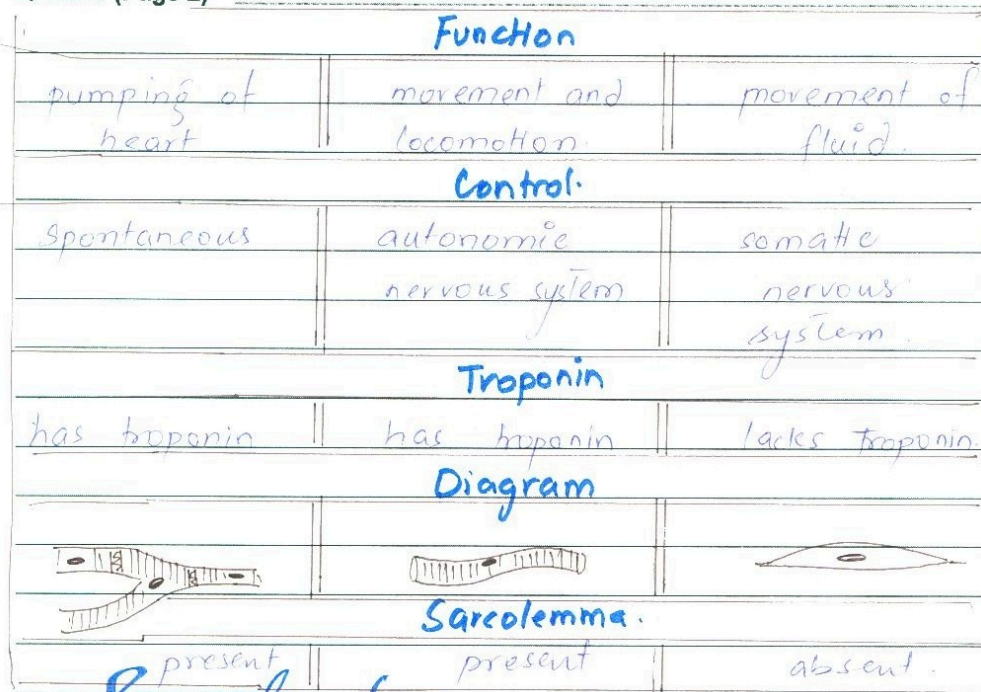 Function
pumping of movement and movement of
heart locomotion. fluid.
Control.
spontaneous autonomic somatic
nervous system nervous
system.
Troponin
has troponin has troponin lacks troponin.
Diagram
Sarcolemma.
present present absent.